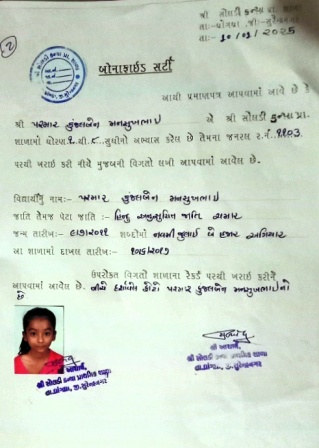 શ્રી સોલડી કન્યા પ્રા. શાળા
તા:- ધ્રાંગધ્રા જી:- સુરેન્દ્રનગર
તા:- 10/01/2025
૨
બોનાફાઈડ સર્ટી
આથી પ્રમાણપત્ર આપવામાં આવે છે કે
શ્રી પરમાર કુંજલબેન મનસુખભાઈ એ શ્રી સોલડી કન્યા પ્રા.
શાળામાં ધોરણ ૧ થી ૮ સુધીનો અભ્યાસ કરેલ છે તેમના જનરલ ર.નં. ૧૧૦૩
પરથી ખરાઈ કરી નીચે મુજબની વિગતો લખી આપવામાં આવેલ છે.
વિદ્યાર્થીનું નામ:- પરમાર કુંજલબેન મનસુખભાઈ
જાતિ તેમજ પેટા જાતિ :- હિન્દુ અનુસુચિત જાતિ ચમાર
જન્મ તારીખ:- ૯/૭/૨૦૧૧ શબ્દોમાં નવમી જુલાઈ બે હજાર અગિયાર
આ શાળામાં દાખલ તારીખ:-
ઉપરોક્ત વિગતો શાળાના રેકર્ડ પરથી ખરાઈ કરીને
આપવામાં આવેલ છે. નીચે દર્શાવેલ ફોટો પરમાર કુંજલબેન મનસુખભાઈનો
છે
આચાર્ય,
શ્રી સોલડી કન્યા પ્રાથમિક શાળા
તા.ધ્રાંગધ્રા, જી.સુરેન્દ્રનગર
આચાર્ય,
શ્રી સોલડી કન્યા પ્રાથમિક શાળા
તા.ધ્રાંગધ્રા, જી.સુરેન્દ્રનગર